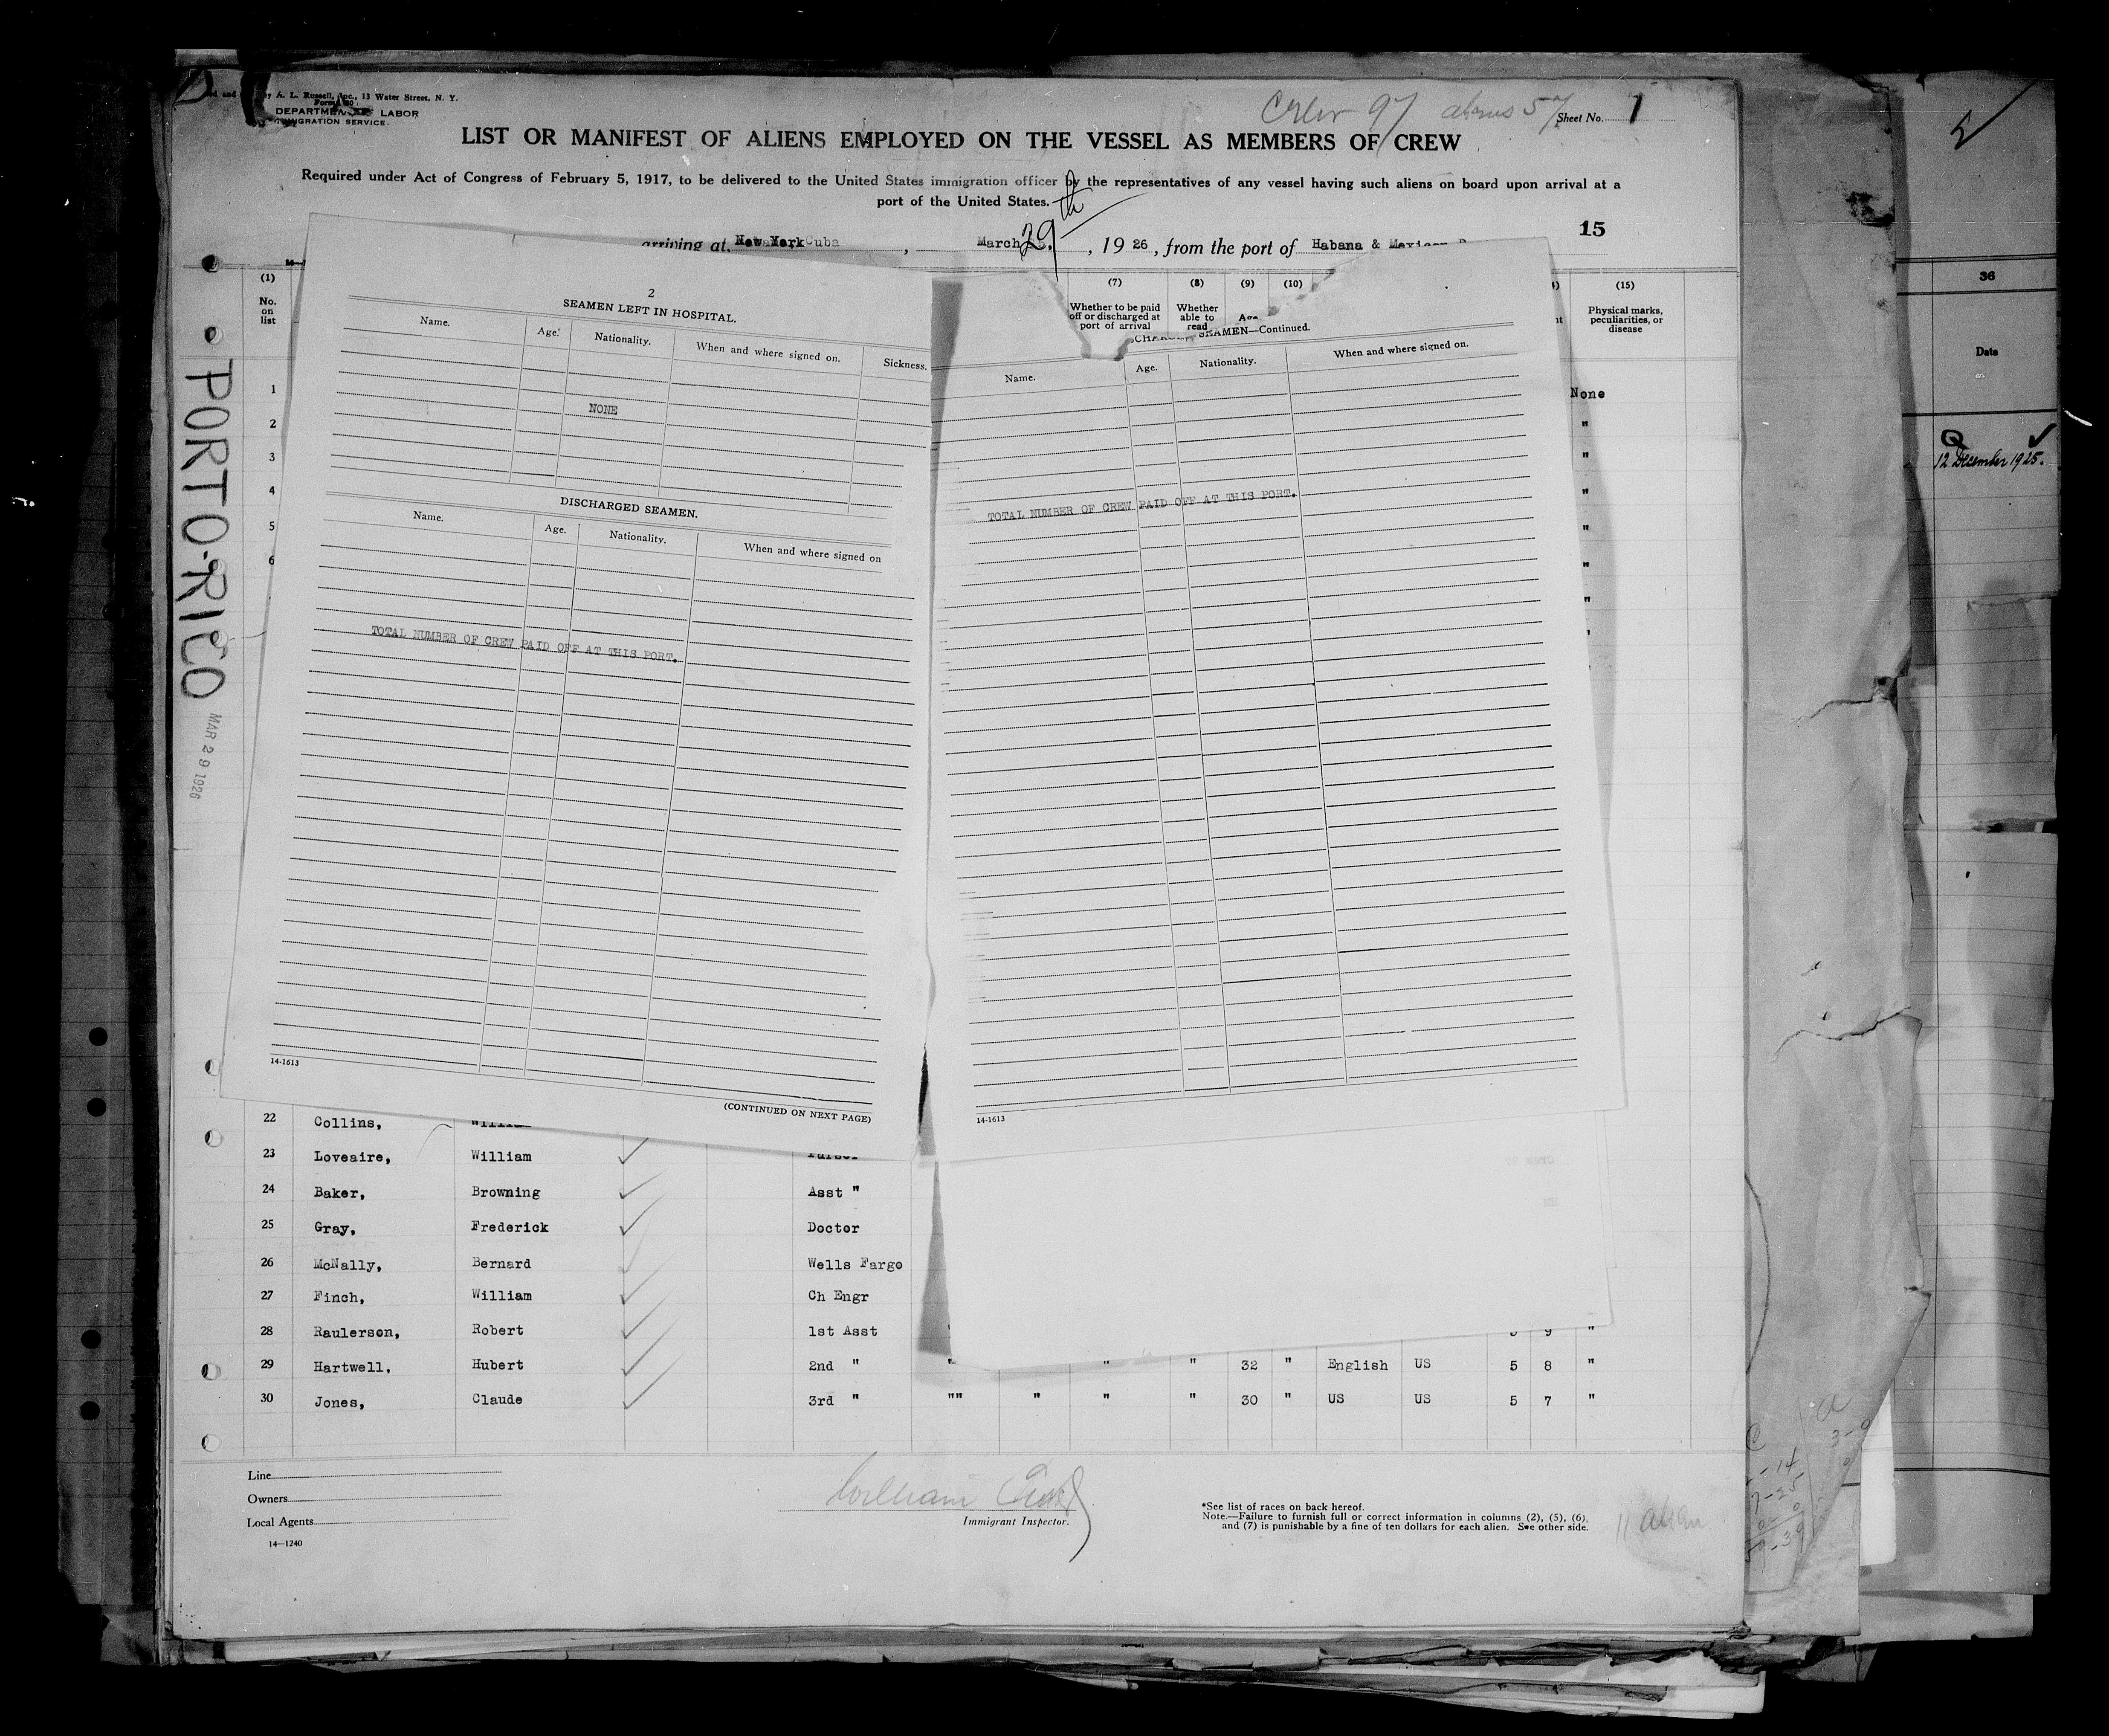 by A. L. Russell, Inc., 13 Water Street, N. Y.
DEPARTMENT LABOR
IMMIGRATION SERVICE.
Crew 97 aliens 57
Sheet No. 1
LIST OR MANIFEST OF ALIENS EMPLOYED ON THE VESSEL AS MEMBERS OF CREW
Required under Act of Congress of February 5, 1917, to be delivered to the United States immigration officer by the representatives of any vessel having such aliens on board upon arrival at a
port of the United States.
15
arriving at New York Cuba, March 29th, 1926, from the port of Habana & Mexican
(1) (7) (8) (9) (10) (15)
No. on list
Whether to be paid off or discharged at port of arrival
Whether able to read
Age
Physical marks, peculiarities, or disease
36
Date
Q
12 December 1925.
PORTO-RICO
MAR 29 1926
2
SEAMEN LEFT IN HOSPITAL.
Name. Age. Nationality. When and where signed on. Sickness.
NONE
DISCHARGED SEAMEN.
Name. Age. Nationality. When and where signed on
TOTAL NUMBER OF CREW PAID OFF AT THIS PORT.
14-1613
(CONTINUED ON NEXT PAGE)
SEAMEN—Continued.
Name. Age. Nationality. When and where signed on.
TOTAL NUMBER OF CREW PAID OFF AT THIS PORT.
14-1613
1 None
2 "
3 "
4 "
5 "
6 "
"
"
22 Collins, William
23 Loveaire, William Purser
24 Baker, Browning Asst "
25 Gray, Frederick Doctor
26 McNally, Bernard Wells Fargo
27 Finch, William Ch Engr
28 Raulerson, Robert 1st Asst 9 "
29 Hartwell, Hubert 2nd " " " " 32 " English US 5 8 "
30 Jones, Claude 3rd " "" " " " 30 " US US 5 7 "
Line
Owners
Local Agents
14—1240
William
Immigrant Inspector.
*See list of races on back hereof.
Note.—Failure to furnish full or correct information in columns (2), (5), (6),
and (7) is punishable by a fine of ten dollars for each alien. See other side.
11 alien